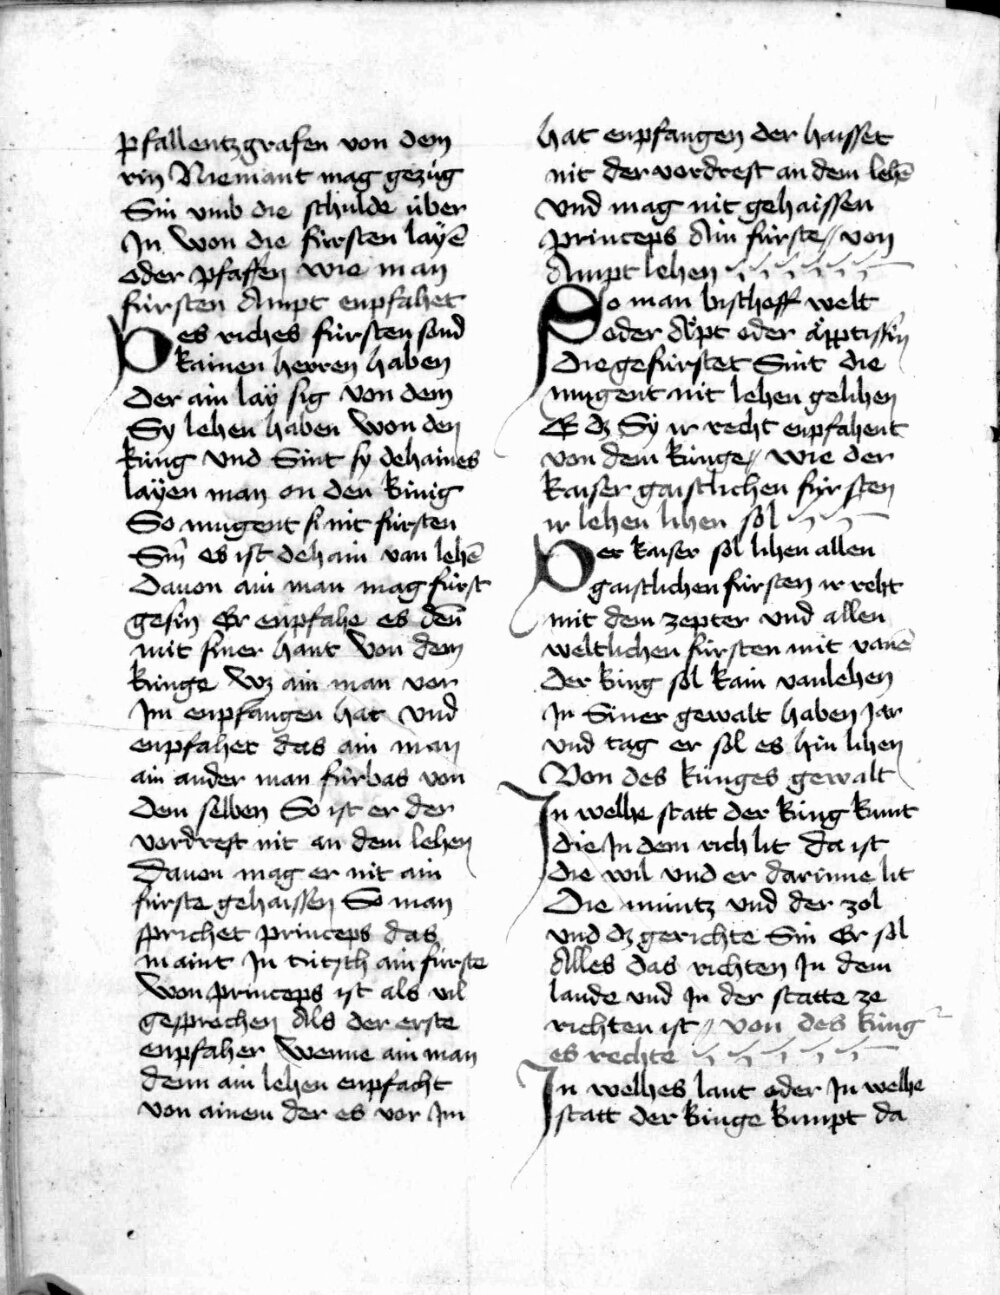 pfallentzgrafen von dem
rin Niemant mag gezùg
Sin vmb die schulde ùber
In won die fùrsten layē
oder pfaffen wie man
fùrsten Ampt enpfahet
Des riches fùrsten sond
kainen herren haben
Der ain lay sig von dem
Sy lehen haben won den
kùng vnd Sint sy dehaines
layen man on den kùnig
So mugent si nit fùrsten
Sin es ist dehain van lehē
Dauon ain man mag fùrst
gesin Er enpfahe es den̄
mit siner hant von dem
kùnge wz ain man vor
Im enpfangen hat vnd
enpfahet das ain man
ain ander man fùrbas von
dem selben So ist er der
vordrest nit an dem lehen
Dauon mag er nit ain
fùrste gehaissen So man
sprichet princeps das
maint In tùtzsch ain fùrste
won princeps ist als vil
gesprochen Als der erste
enpfaher wenne ain man
denn ain lehen enpfacht
von ainem der es vor Im
hat enpfangen der haisset
nit der vordrest an dem lehē
vnd mag nit gehaissen
princeps Ain fùrste // von
Ampt lehen
So man bischoff welt
oder Äpt oder äpptissin
Die gefùrstet Sint die
mugent nit lehen gelihen
E dz Sy ir recht enpfahent
von dem kùnge // wie der
kaiser gaistlichen fùrsten
ir lehen lihen sol
Der kaiser sol lihen allen
gaistlichen fùrsten ir reht
mit dem zepter vnd allen
weltlichen fùrsten mit vanē
Der kùng sol kain vanlehen
In Siner gewalt haben Jar
vnd tag er sol es hin lihen
Von des kùnges gewalt
In welhe statt der kùng kunt
die In dem rich lit da ist
die wil vnd er darinne lit
Die mùntz vnd der zol
vnd dz gerichte Sin Er sol
Alles das richten In dem
lande vnd In der statte ze
richten ist // von des kùng
es rechte
In welhes lant oder In welhe
statt der kùnge kumpt da